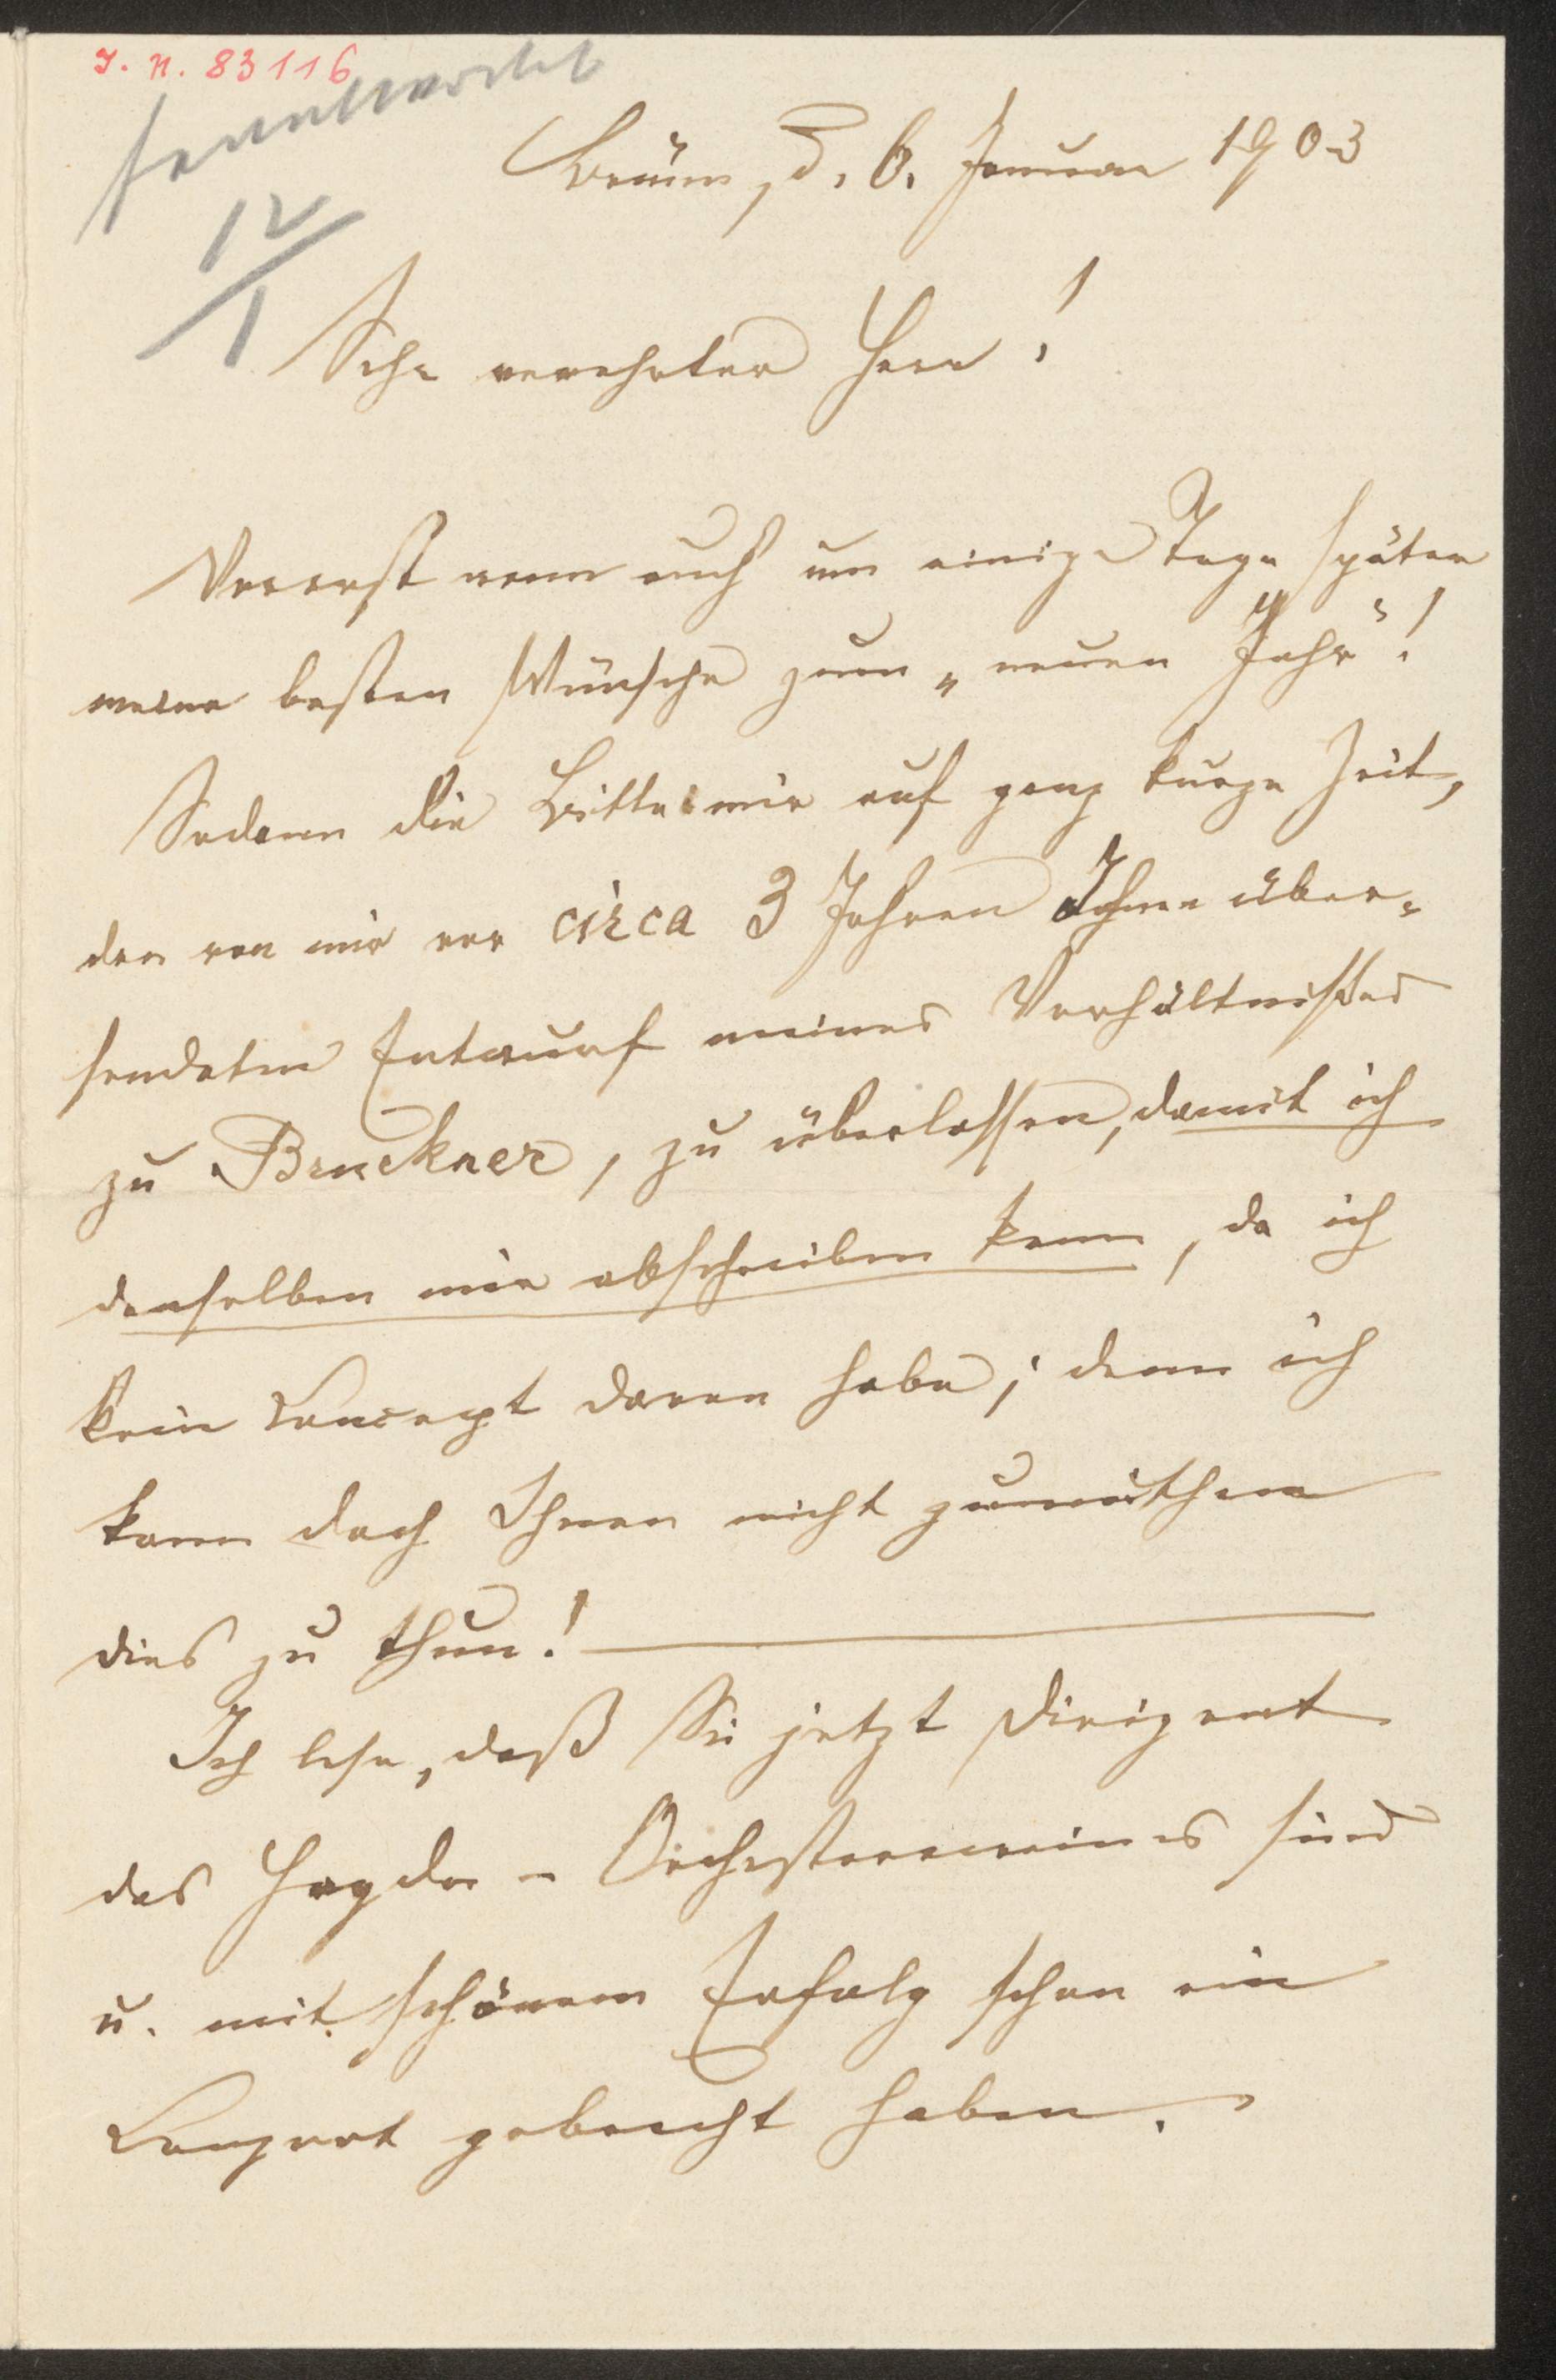 I. N. 83116
beantwortet
12/1
Brünn, d. 6. Januar 1903
Sehr verehrter Herr!
Vorerst wenn auch um einige Tage später
meine besten Wünsche zum „neuen Jahr“!
Sodann die Bitte mir auf ganz kurze Zeit,
den von mir vor circa 3 Jahren Ihnen über-
sendeten Entwurf meines Verhältnißes
zu Bruckner, zu überlassen, damit ich
denselben mir abschreiben kann, da ich
kein Concept davon habe; denn ich
kann doch Ihnen nicht zumuthen
dies zu thun! —
Ich lese, daß Sie jetzt Dirigent
des Haydn-Orchestervereines sind
u. mit schönem Erfolg schon ein
Conzert gebracht haben.